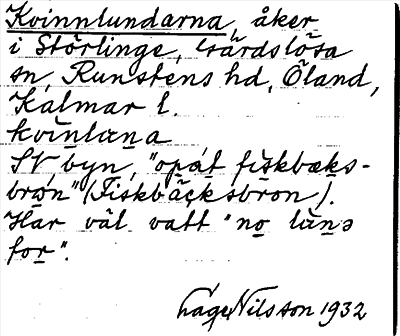 Kvinnlundarna, åker
i Störlinge, Gärdslösa
sn, Runstens hd, Öland,
Kalmar l.
kvinlana
SV byn, "opåt fiskbæks-
bron" (Fiskbäcksbron).
Har väl vatt "no läns
for".
Nilsson 1932